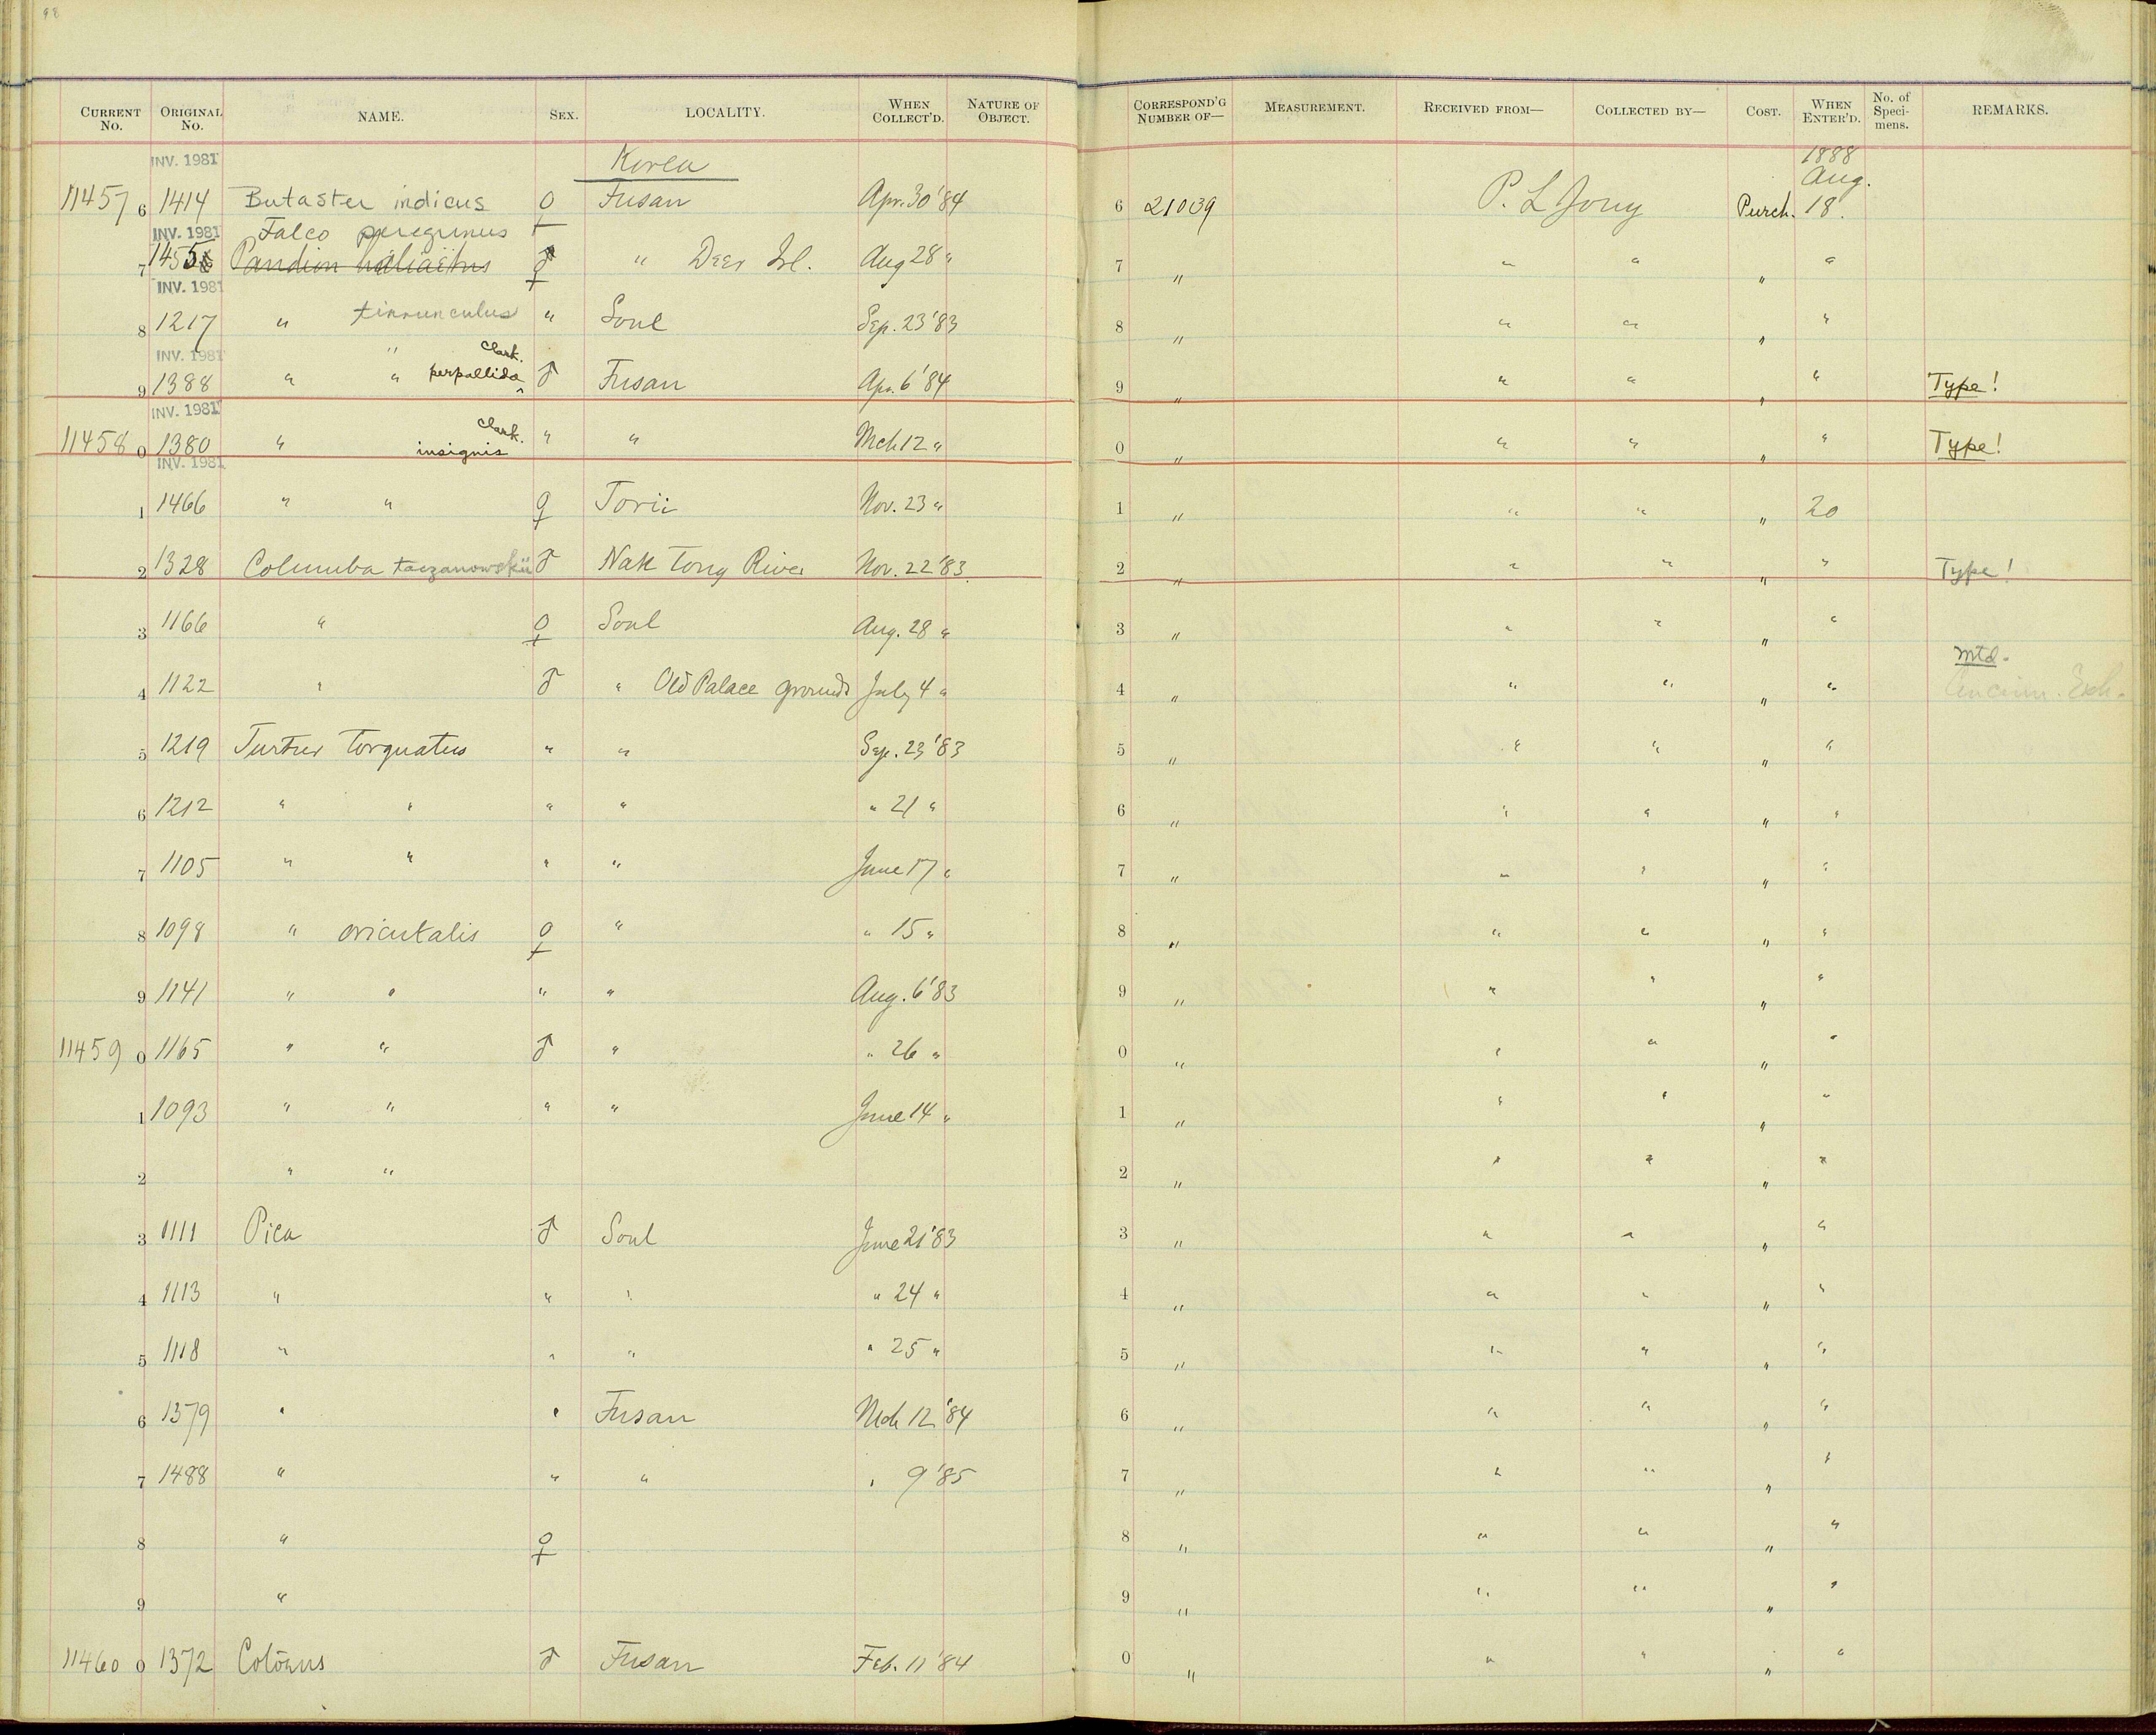 98
CURRENT No. ORIGINAL No. NAME. SEX. LOCALITY. WHEN COLLECT'D. NATURE OF OBJECT. CORRESPOND'G NUMBER OF— MEASUREMENT. RECEIVED FROM— COLLECTED BY— COST. WHEN ENTER'D. No. of Specimens. REMARKS.
INV. 1981 Korea 1888
Aug.
11457 6 1414 Butaster indicus ♀ Fusan Apr. 30 '84 6 21039 P. L Jouy Purch. 18.
INV. 1981 Falco peregrinus
7 1455 Pandion haliaëtus ♀ " Deer Isl. Aug 28 " 7 " " " " "
INV. 1981
8 1217 " tinnunculus " Soul Sep. 23 '83 8 " " " " "
INV. 1981 " Clark.
9 1388 " " perpallida ♂ Fusan Apr. 6 '84 9 " " " " " Type!
INV. 1981 Clark.
11458 0 1380 " insignis " " Mch 12 " 0 " " " " " Type!
INV. 1981
1 1466 " " ♀ Torii Nov. 23 " 1 " " " " 20
2 1328 Columba taczanowskii ♂ Nak Tong River Nov. 22 '83 2 " " " " " Type!
3 1166 " ♀ Soul Aug. 28 " 3 " " " " "
Mtd.
4 1122 " ♂ " Old Palace grounds July 4 " 4 " " " " " Cincinn. Exh.
5 1219 Turtur torquatus " " Sep. 23 '83 5 " " " " "
6 1212 " " " " " 21 " 6 " " " " "
7 1105 " " " " June 17 " 7 " " " " "
8 1098 " orientalis ♀ " " 15 " 8 " " " " "
9 1141 " " " " Aug. 6 '83 9 " " " " "
11459 0 1165 " " ♂ " " 26 " 0 " " " " "
1 1093 " " " " June 14 " 1 " " " " "
2 " " 2 " " " " "
3 1111 Pica ♂ Soul June 21 '83 3 " " " " "
4 1113 " " " " 24 " 4 " " " " "
5 1118 " " " " 25 " 5 " " " " "
6 1379 " " Fusan Mch 12 '84 6 " " " " "
7 1488 " " " " 9 '85 7 " " " " "
8 " ♀ 8 " " " " "
9 " 9 " " " " "
11460 0 1372 ♂ Fusan Feb. 11 '84 0 " " " " "